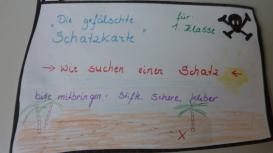 "Die gefälschte
Schatzkarte"
für:
1. Klasse
→ wir suchen einen Schatz ←
bitte mitbringen: Stift, Schere, Kleber
X